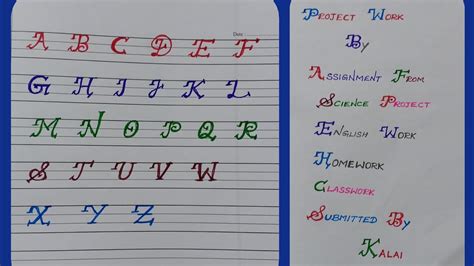 A B C D E F
G H I J K L
M N O P Q R
S T U V W
X Y Z
Project Work
By
Assignment From
Science Project
English Work
Homework
Classwork
Submitted By
Kalai